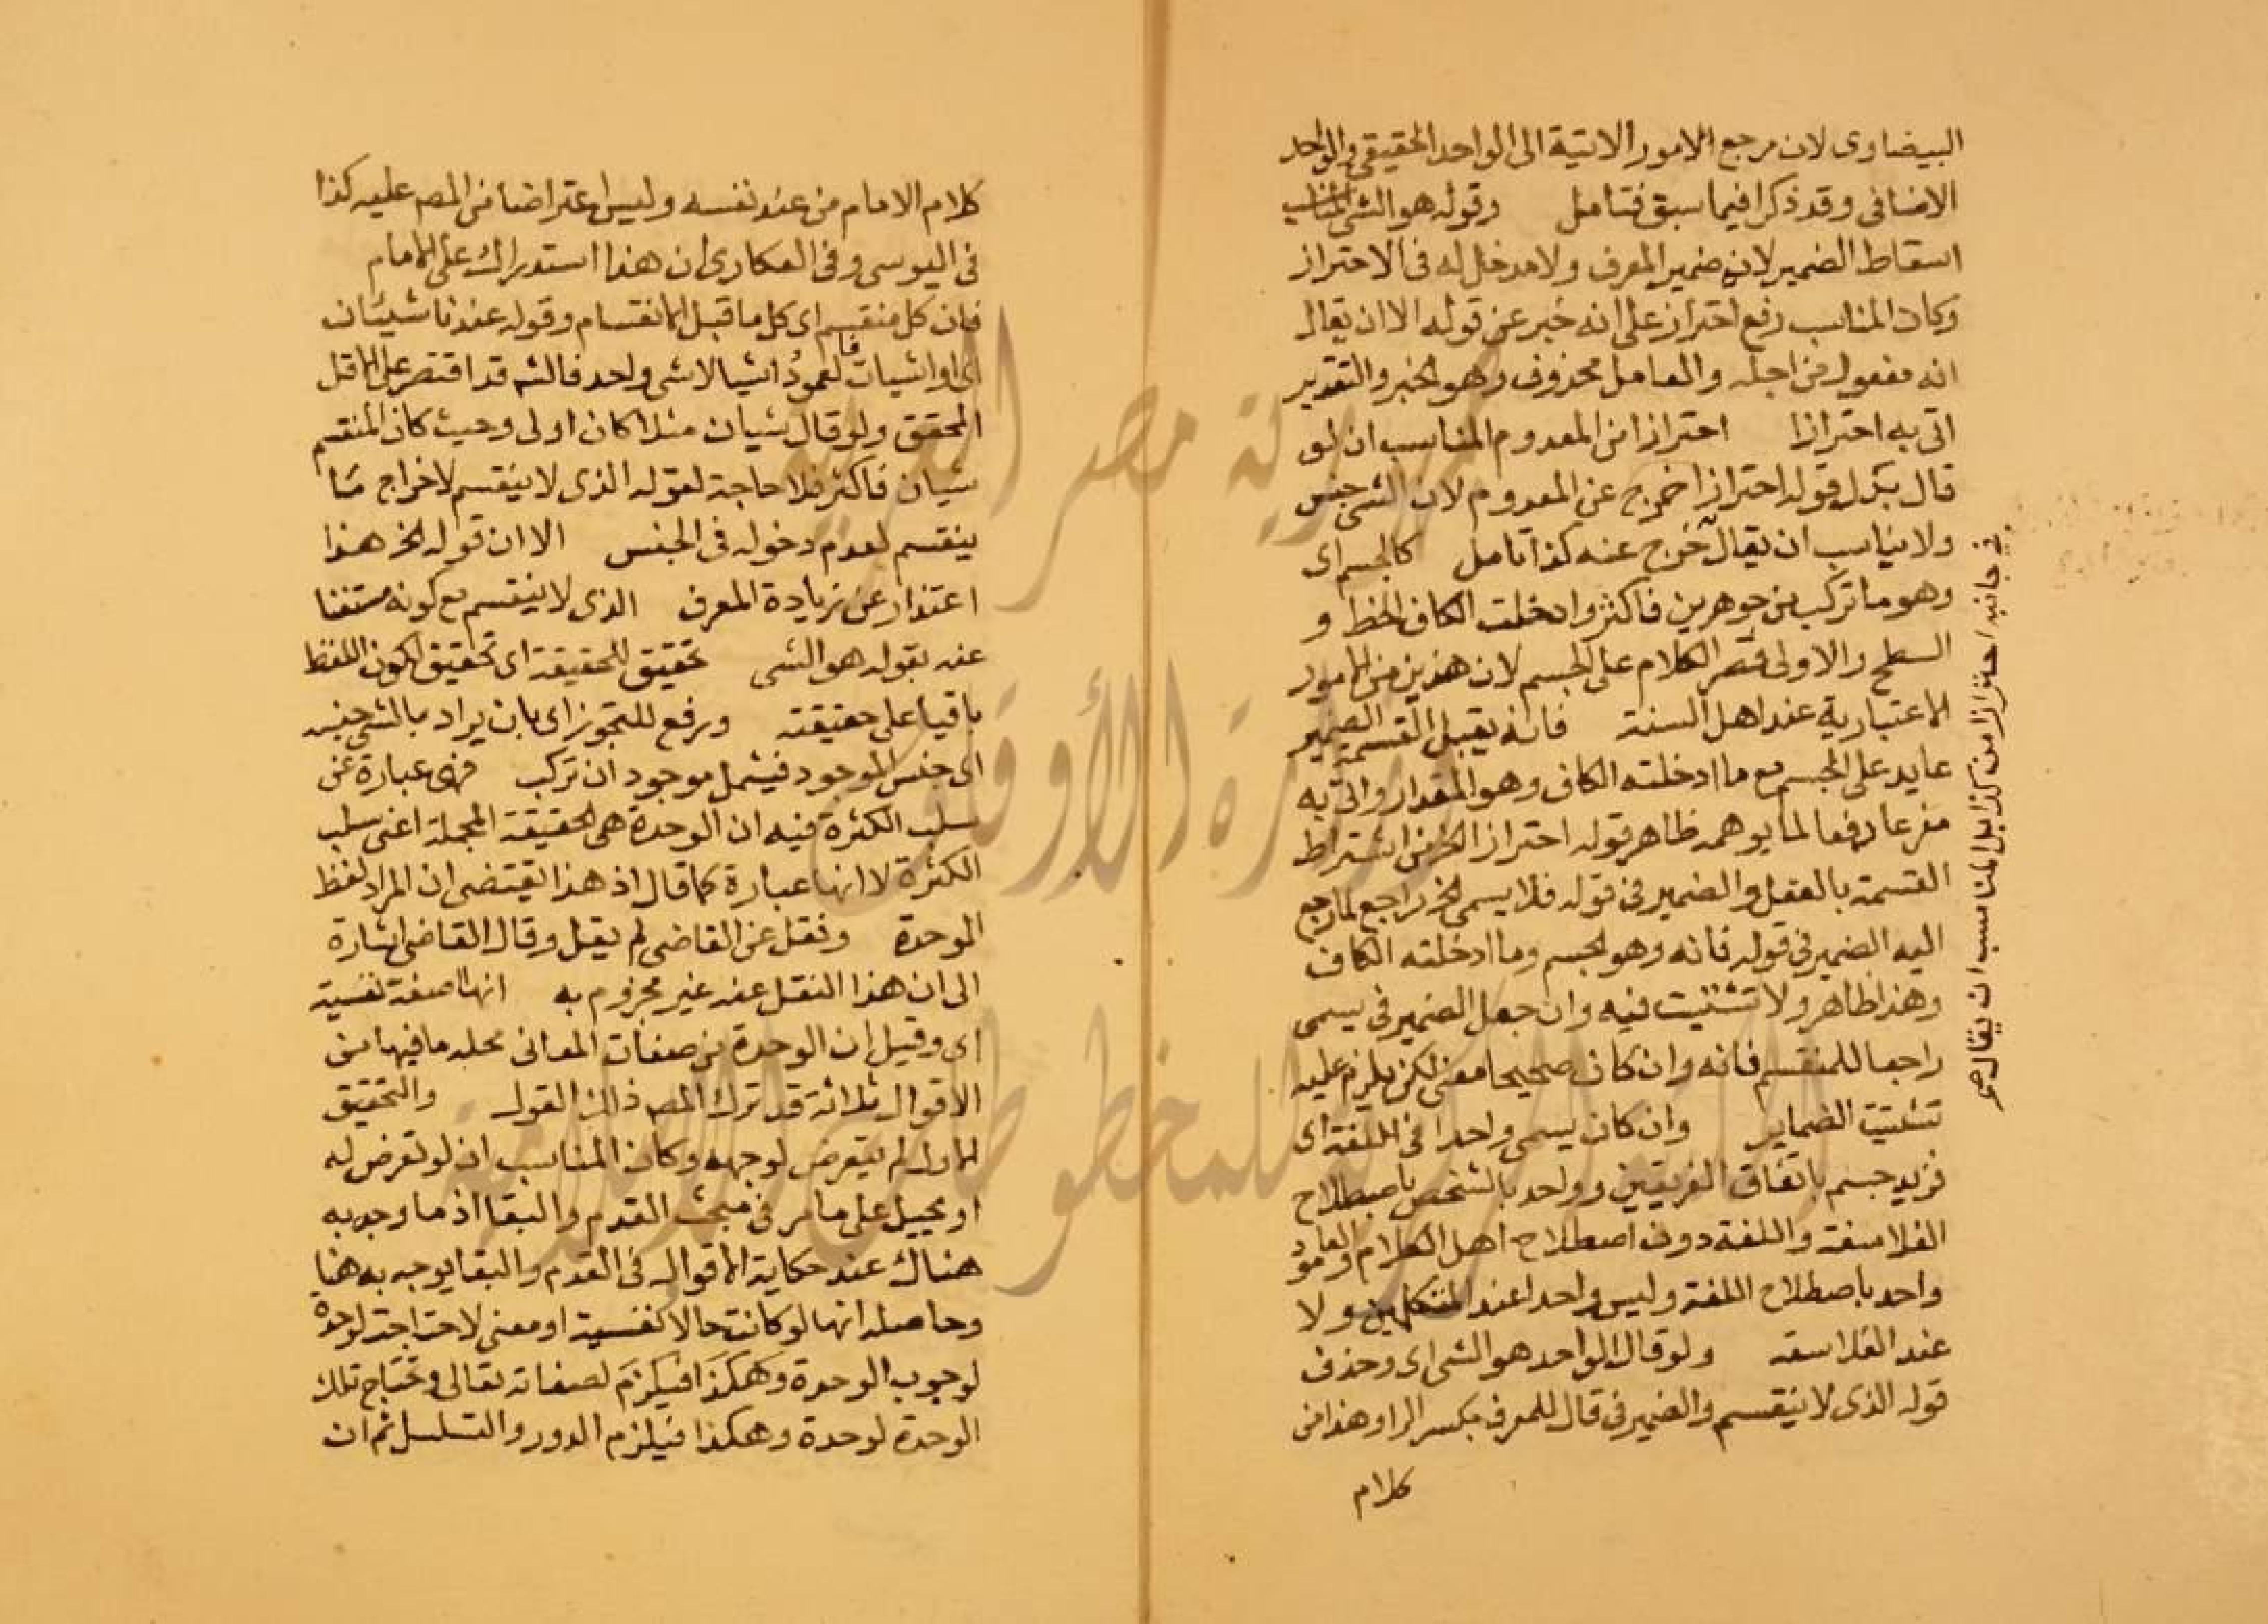 البيضاوى لان مرجع الامور الاتية الى الواحد الحقيقى والواحد
الاضافى وقد ذكرا فيما سبق فتامل وقوله هو الشى المناسب
اسقاط الضمير لانه ضمير المعرف ولا مدخل له فى الاحتراز
وكان المناسب رفع احتراز على انه خبر عن قوله الا ان يقال
انه مفعول من اجله والعامل محذوف وهو الخبر والتقدير
اتى به احترازا احترازا من المعدوم المناسب ان لو
قال بدل قوله احترازا خرج عن المعدوم لان الشى جنس
ولا يناسب ان يقال خرج عنه كذا تامل كالجسم اى
وهو ما تركب من جوهرين فاكثر وادخلت الكاف الخط و
السطح والاولى قصر الكلام على الجسم لان هذين من الامور
الاعتبارية عند اهل السنة فانه يقبل القسمة الضمير
عايد على الجسم مع ما ادخلته الكاف وهو المقدار واتى به
مفرعا دفعا لما يوهمه ظاهر قوله احتراز الخ من اشتراط
القسمة بالفعل والضمير فى قوله فلا يسمى الخ راجع لما رجع
اليه الضمير فى قوله فانه وهو الجسم وما ادخلته الكاف
وهذا ظاهر ولا تشتيت فيه وان جعل الضمير فى يسمى
راجعا للمنقسم فانه وان كان صحيحا معنى لكن يلزم عليه
تشتيت الضماير وان كان يسمى واحدا فى اللغة اى
فزيد جسم باتفاق الفريقين وواحد بالشخص باصطلاح
الفلاسفة واللغة دون اصطلاح اهل الكلام والعامود
واحد باصطلاح اللغة وليس واحدا عند المتكلمين ولا
عند الفلاسفة ولو قال الواحد هو الشى اى وحذف
قوله الذى لا ينقسم والضمير فى قال للمعرف بكسر الراء وهذا من
كلام
فى جانبه احترازا من كذا بل المناسب ان يقال
كلام الامام من عند نفسه وليس اعتراضا من المص عليه كذا
فى اليوسى وفى العكارى ان هذا استدراك على الامام
فان كل منقسم اى كل ما قبل الانقسام وقوله عندنا شيئان
اى او اشيات فالعمود اشيا لا شى واحد فالشه قد اقتصر على الاقل
المحقق ولو قال شيان مثلا كان اولى وحيث كان المنقسم
شيان فاكثر فلا حاجة لقوله الذى لا ينقسم لاخراج ما
ينقسم لعدم دخوله فى الجنس الا ان قوله الخ هذا
اعتذار عن زيادة المعرف الذى لا ينقسم مع كونه مستغنا
عنه بقوله هو الشى تحقيق للحقيقة اى تحقيق لكون اللفظ
باقيا على حقيقته ورفع للتجوز اى بان يراد بالشى جنسه
اى جنس الموجود فيشمل موجود ان تركب فهى عبارة عن
سلب الكثرة فيه ان الوحدة هى الحقيقة المجملة اعنى سلب
الكثرة لا انها عبارة كما قال اذ هذا يقتضى ان المراد لفظ
الوحدة ونقل عن القاضى لم يقل وقال القاضى اشارة
الى ان هذا النقل عنه غير مجزوم به انها صفة نفسية
اى وقيل ان الوحدة من صفات المعانى محله ما فيها من
الاقوال ثلاثة قد ترك المص ذلك القول والتحقيق
الاول لم يتعرض لوجهه وكان المناسب ان لو تعرض له
او يحيل على ما مر فى مبحث القدم والبقا اذ ما وجه به
هناك عند حكاية الاقوال فى القدم والبقا يوجه به هنا
وحاصله انها لو كانت حالا نفسية او معنى لاحتاجت لوحدة
لوجوب الوحدة وهكذا فيلزم لصفاته تعالى وتحتاج تلك
الوحدة لوحدة وهكذا فيلزم الدور والتسلسل ثم ان